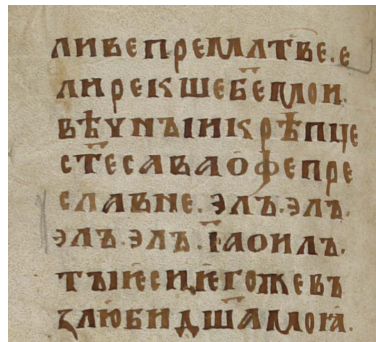 ливепремлтве·е
лирекшебе҃мои·
вѣчнꙑиікрѣпце
ст҃есаваоѳепре
славне·элъ·элъ·
элъ·элъ·і҃аоилъ·
тꙑѥсиѥгожевъ
ꙁлюбидш҃амоꙗ·